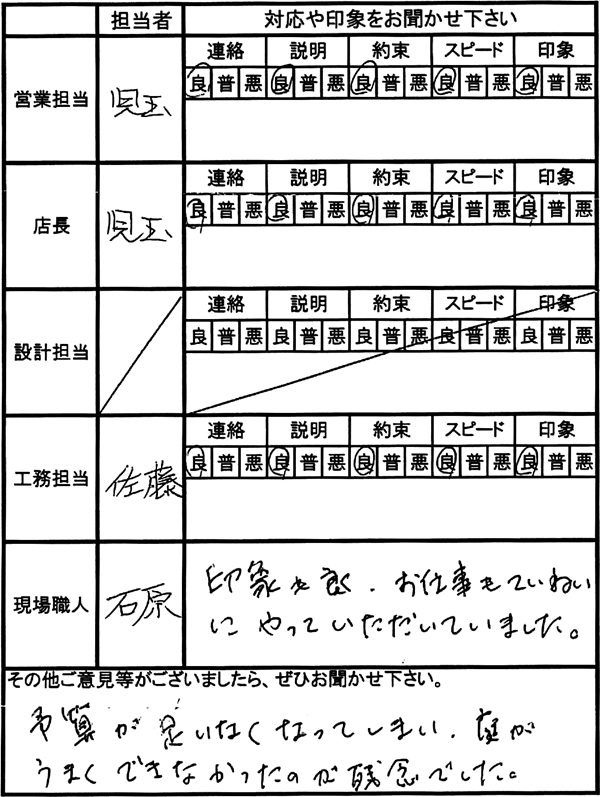 担当者 対応や印象をお聞かせ下さい
営業担当 児玉
連絡 説明 約束 スピード 印象
良 普 悪 良 普 悪 良 普 悪 良 普 悪 良 普 悪
店長 児玉
連絡 説明 約束 スピード 印象
良 普 悪 良 普 悪 良 普 悪 良 普 悪 良 普 悪
設計担当
連絡 説明 約束 スピード 印象
良 普 悪 良 普 悪 良 普 悪 良 普 悪 良 普 悪
工務担当 佐藤
連絡 説明 約束 スピード 印象
良 普 悪 良 普 悪 良 普 悪 良 普 悪 良 普 悪
現場職人 石原
印象も良く、お仕事もていねい
にやっていただいていました。
その他ご意見等がございましたら、ぜひお聞かせ下さい。
予算が足いなくなってしまい、庭が
うまくできなかったのが残念でした。